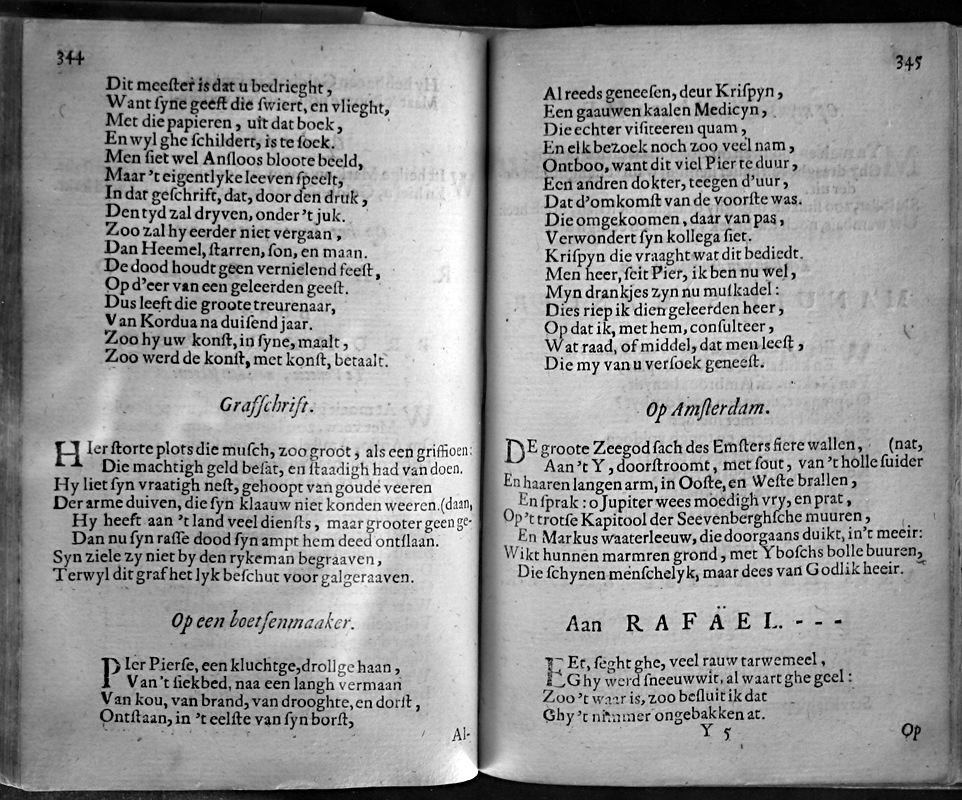 344
Dit meeſter is dat u bedrieght,
Want ſyne geeſt die ſwiert, en vlieght,
Met die papieren, uit dat boek,
En wyl ghe ſchildert, is te ſoek.
Men ſiet wel Anſloos bloote beeld,
Maar 't eigentlyke leeven ſpeelt,
In dat geſchrift, dat, door den druk,
Den tyd zal dryven, onder 't juk.
Zoo zal hy eerder niet vergaan,
Dan Heemel, ſtarren, ſon, en maan.
De dood houdt geen vernielend feeſt,
Op d'eer van een geleerden geeſt.
Dus leeft die groote treurenaar,
Van Kordua na duiſend jaar.
Zoo hy uw konſt, in ſyne, maalt,
Zoo werd de konſt, met konſt, betaalt.
Grafſchrift.
HIer ſtorte plots die muſch, zoo groot, als een griffioen:
Die machtigh geld beſat, en ſtaadigh had van doen.
Hy liet ſyn vraatigh neſt, gehoopt van goude veeren
Der arme duiven, die ſyn klaauw niet konden weeren. (daan,
Hy heeft aan 't land veel dienſts, maar grooter geen ge-
Dan nu ſyn raſſe dood ſyn ampt hem deed ontſlaan.
Syn ziele zy niet by den rykeman begraaven,
Terwyl dit graf het lyk beſchut voor galgeraaven.
Op een boetſenmaaker.
PIer Pierſe, een kluchtge, drollge haan,
Van 't ſiekbed, naa een langh vermaan
Van kou, van brand, van drooghte, en dorſt,
Ontſtaan, in 't eelſte van ſyn borſt,
Al-
345
Al reeds geneeſen, deur Kriſpyn,
Een gaauwen kaalen Medicyn,
Die echter viſiteeren quam,
En elk bezoek noch zoo veel nam,
Ontboo, want dit viel Pier te duur,
Een andren dokter, teegen d'uur,
Dat d'omkomſt van de voorſte was.
Die omgekoomen, daar van pas,
Verwondert ſyn kollega ſiet.
Kriſpyn die vraaght wat dit bediedt.
Men heer, ſeit Pier, ik ben nu wel,
Myn drankjes zyn nu muſkadel:
Dies riep ik dien geleerden heer,
Op dat ik, met hem, conſulteer,
Wat raad, of middel, dat men leeſt,
Die my van u verſoek geneeſt.
Op Amſterdam.
DE groote Zeegod ſach des Emſters fiere wallen, (nat,
Aan 't Y, doorſtroomt, met ſout, van 't holle ſuider
En haaren langen arm, in Ooſte, en Weſte brallen,
En ſprak: o Jupiter wees moedigh vry, en prat,
Op 't trotſe Kapitool der Seevenberghſche muuren,
En Markus waaterleeuw, die doorgaans duikt, in 't meeir:
Wikt hunnen marmren grond, met Yboſchs bolle buuren,
Die ſchynen menſchelyk, maar dees van Godlik heeir.
Aan RAFAËL. - - -
EEt, ſeght ghe, veel rauw tarwemeel,
Ghy werd ſneeuwwit, al waart ghe geel:
Zoo 't waar is, zoo beſluit ik dat
Ghy 't nimmer ongebakken at.
Y 5
Op